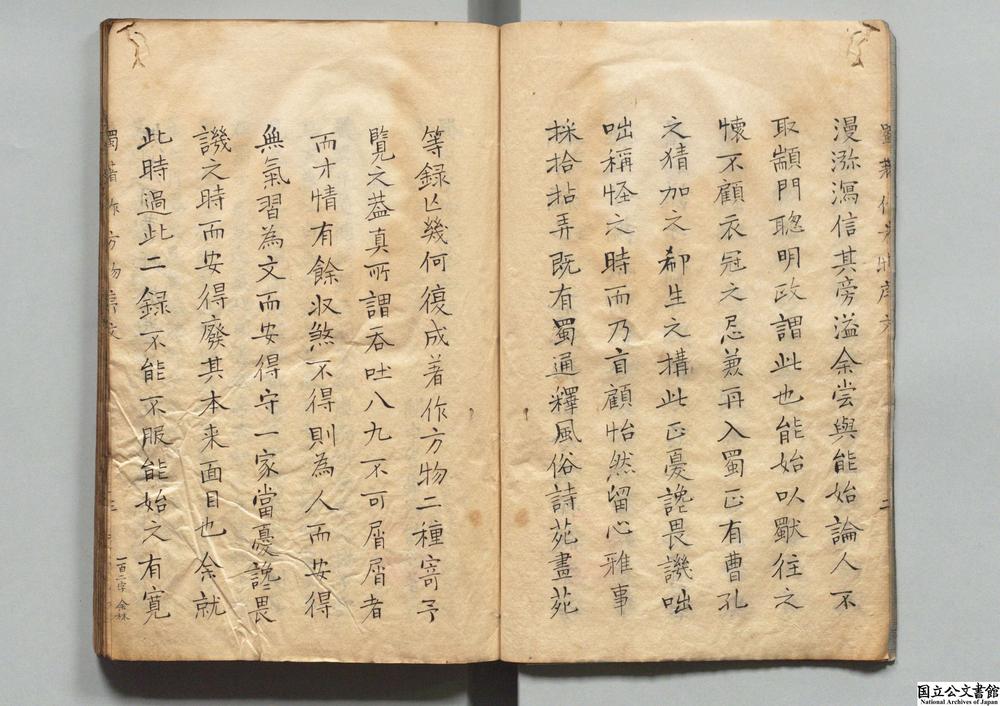 漫瀰瀉信其旁溢余尝與能始論人不
取顓門聰明政謂此也能始以獸往之
懐不顧衣冠之忌兼再入蜀正有曹孔
之猜加之郗生之搆此正憂讒畏譏咄
咄稱怪之時而乃盲顧怡然留心雅事
採拾拈弄既有蜀通釋風俗詩苑畫苑
等録亾幾何復成著作方物二種寄予
覧之葢真所謂吞吐八九不可屑屑者
而才情有餘収煞不得則為人而安得
無氣習為文而安得守一家當憂讒畏
譏之時而安得廢其本来面目也余就
此時過此二録不能不服能始之有寛
一百二字 余林
国立公文書館
National Archives of Japan